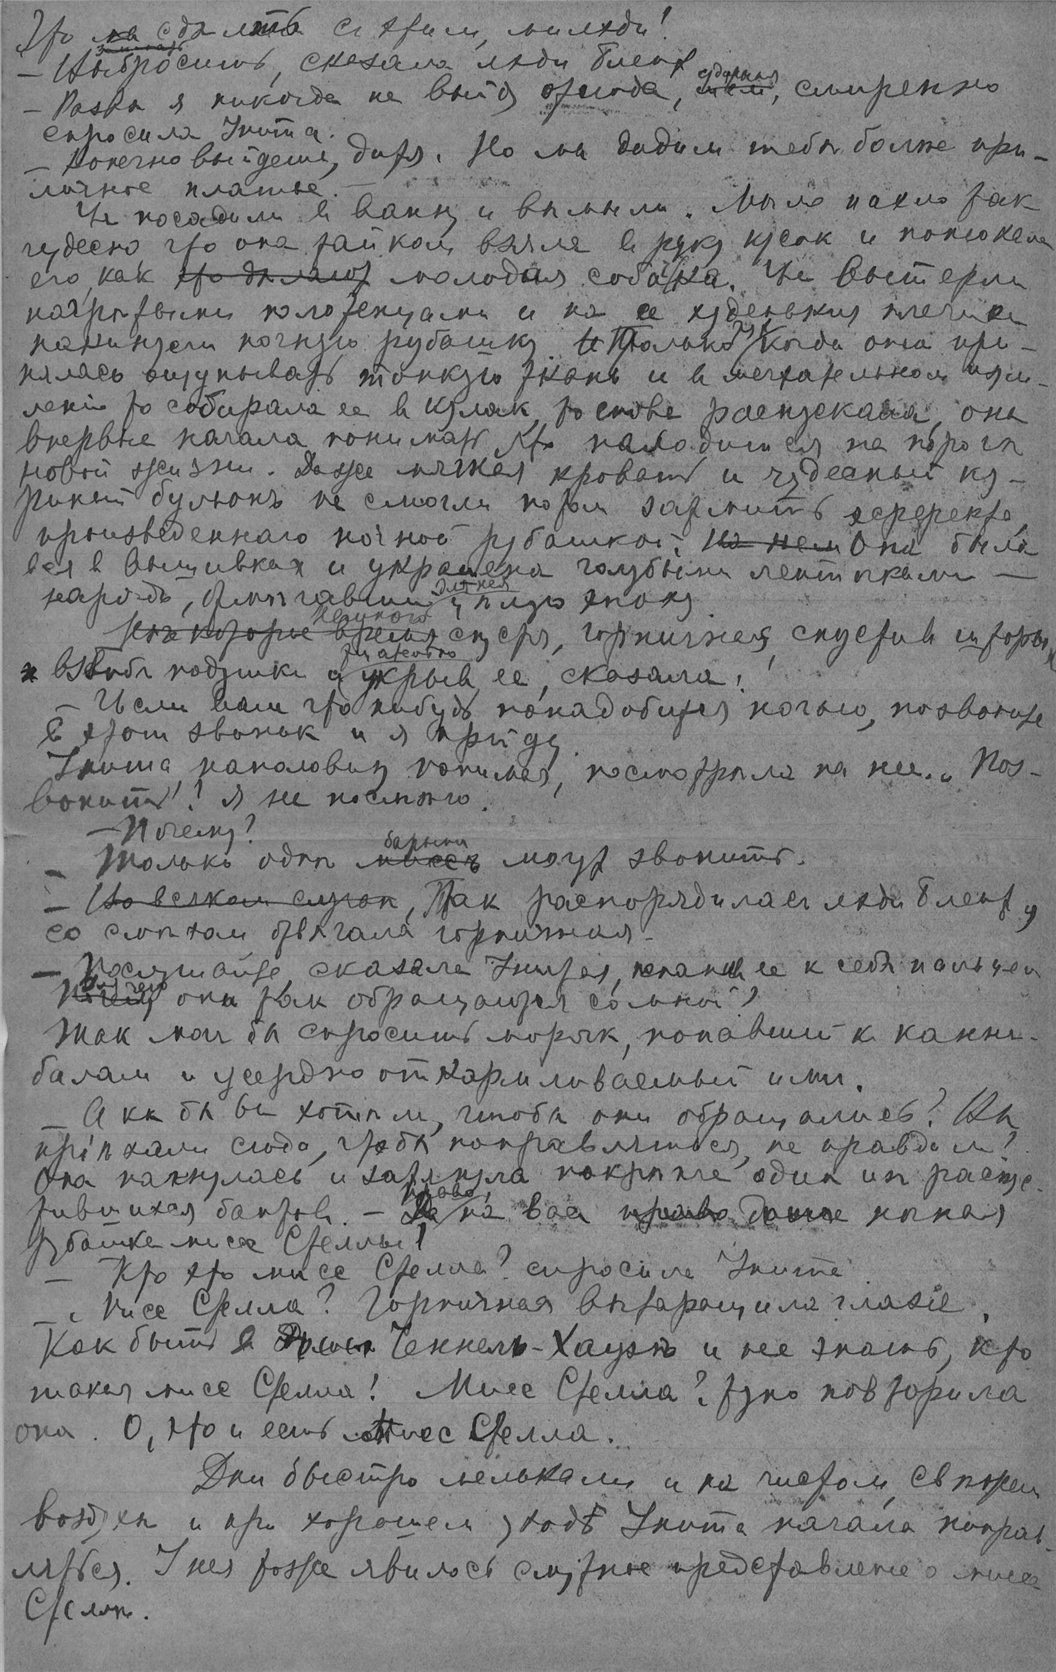 Что сдѣлать съ этим, миледи!
— Выбросить, сказала лэди Блент
— Развѣ я никогда не выйду отсюда, смиренно
спросила Унита.
— Конечно выйдешь, дитя. Но мы дадим тебѣ болѣе при-
личное платье.
Ее посадили в ванну и вымыли. Мыло пахло так
чудесно что она тайком взяла в руку кусок и понюхала
его, как это дѣлают молодая собака. Ее вытерли
нагрѣтыми полотенцами и на ее худенькия плечики
накинули ночную рубашку. И только тут когда она при-
нялась ощупывать тонкую ткань и в мечтательном изум-
лении то собирала ее в кулак, то снова распускала, она
впервые начала понимать что находится на порогѣ
новой жизни. Даже мягкая кровать и чудесный ку-
риный бульонъ не смогли потом затмить эффекта,
произведеннаго ночной рубашкой. На нем Она была
вся в вышивках и украшена голубыми ленточками —
нарядъ, для нея цѣлую эпоху.
Нѣкоторое время спустя, горничная, спустив шторы,
взбив подушки и тщательно укрыв ее, сказала:
— Если вам что нибудь понадобится ночью, позвоните
в этот звонок и я прийду.
Унита, наполовину понимая, посмотрѣла на нее. „Поз-
вонить"? Я не посмѣю.
— Почему?
— Только однѣ барыни могут звонить.
— На всякой случай, Так распорядилась лэди Блент,
со смѣхом отвѣчала горничная.
— Послушайте, сказала Унита, поманив ее к себѣ пальцем
Почему они так обращаются со мной?
Так мог бы спросить моряк, попавший к канни-
балам и усердно откармливаемый ими.
— А как бы вы хотѣли, чтобы они обращались? Вы
приѣхали сюда, чтобы поправляться, не правда ли?
Она нагнулась и затянула покрѣпче один из распус-
тившихся бантов. — Да право, на вас право даже ночная
рубашка мисс Стеллы!
— Кто это мисс Стелла? спросила Унита
— Мисс Стелла? Горничная вытаращила глаза.
Как быть в Ченнель-Хаузѣ и не знать, кто
такая мисс Стелла! Мисс Стелла? тупо повторила
она. О, это и есть мисс Стелла.
Дни быстро мелькали и на чистом, свѣжем
воздухѣ и при хорошем уходѣ Унита начала поправ-
ляться. У нея тоже явилось смутное представление о мисс
Стеллѣ.